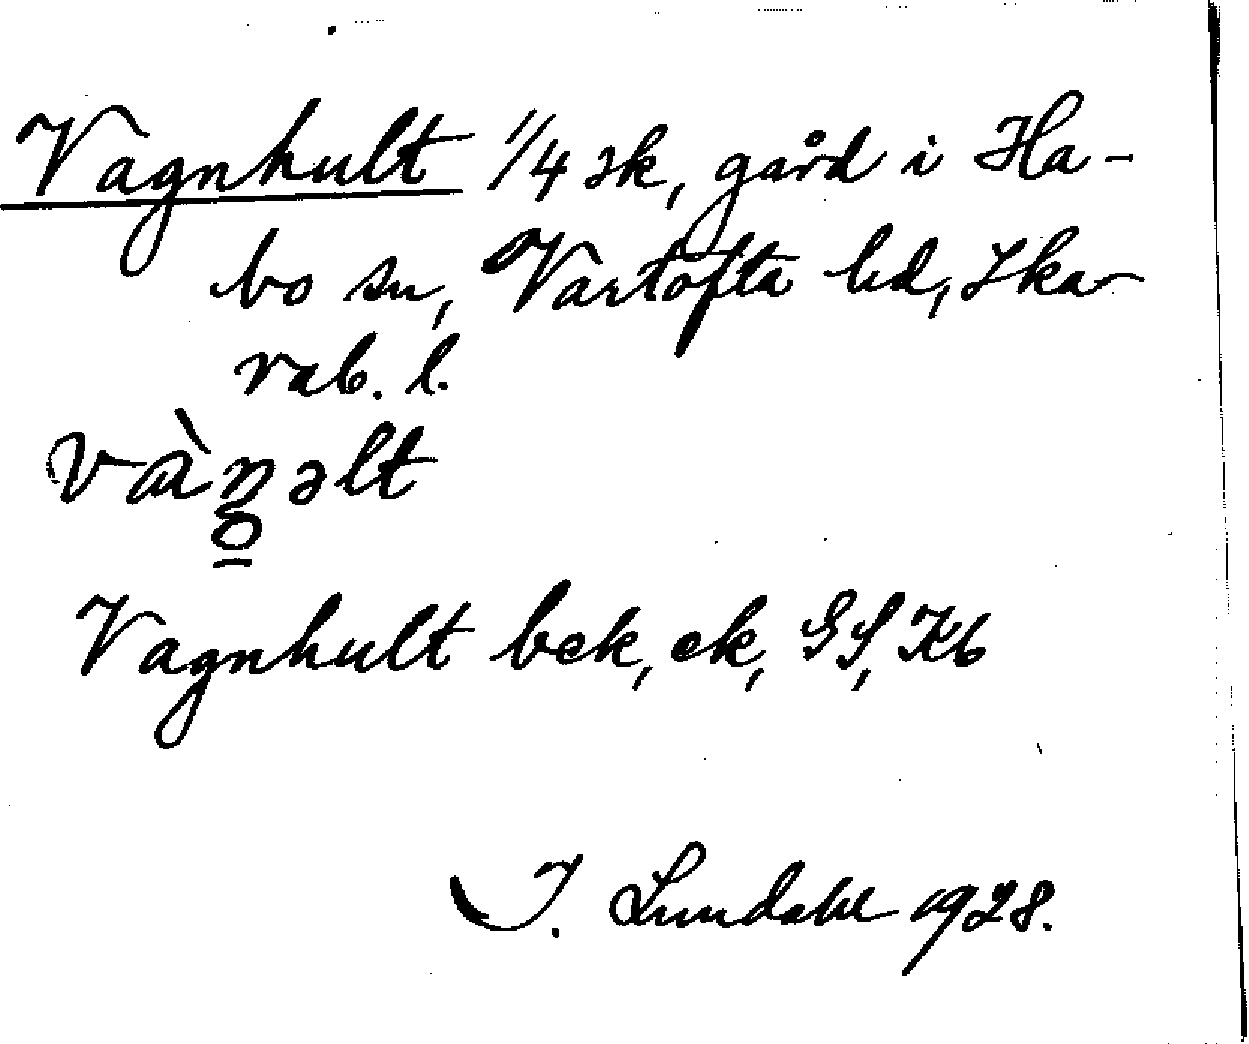 Vagnhult 1/4 sk, gård i Ha-
bo sn, Vartofta hd, Ska-
rab. l.
Vagnhult bek, ek, GS, Kb
I. Lundahl 1928.